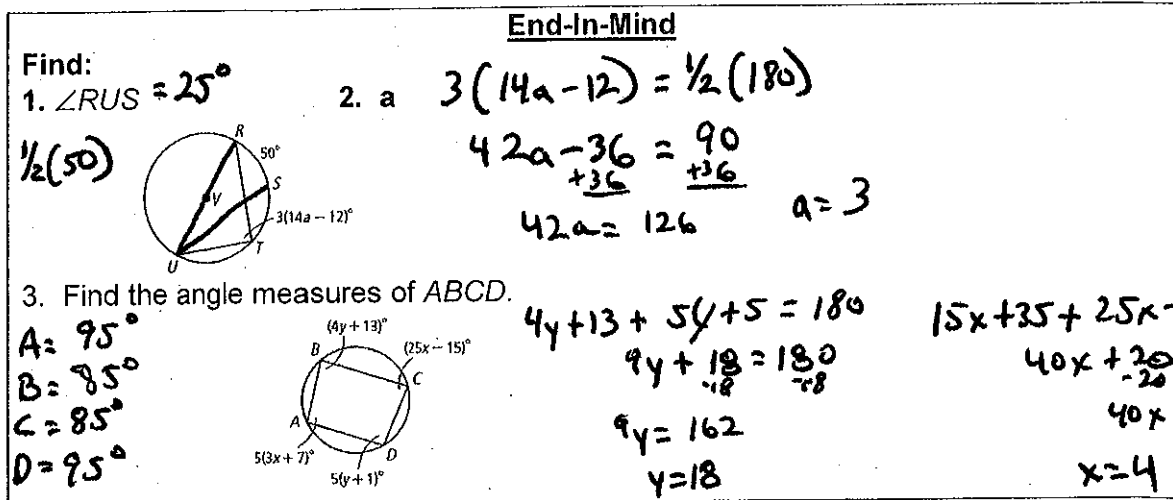 End-In-Mind
Find:
1. ∠RUS = 25°
½(50)
R
50°
S
V
3(14a − 12)°
T
U
2. a
3(14a-12) = ½(180)
42a-36 = 90
+36 +36
42a = 126
a= 3
3. Find the angle measures of ABCD.
A= 95°
B= 85°
C= 85°
D= 95°
(4y + 13)°
B
(25x − 15)°
C
A
D
5(3x + 7)°
5(y + 1)°
4y+13 + 5y+5 = 180
9y + 18 = 180
-18 -18
9y= 162
y=18
15x+35 + 25x-
40x + 20
-20
40x
x=4